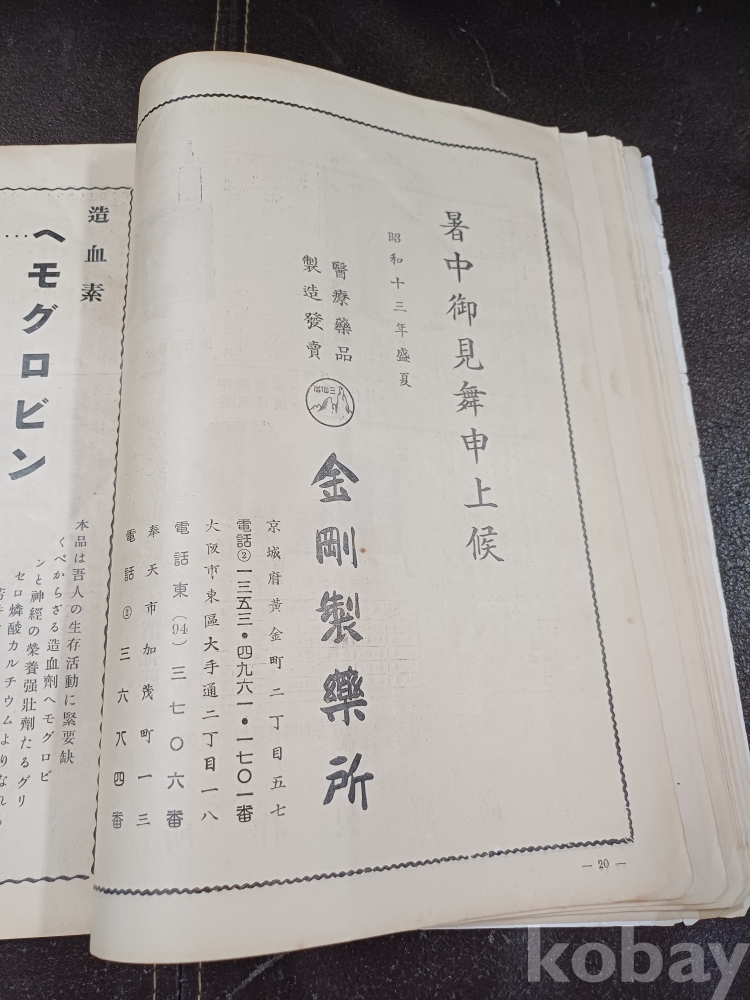 暑中御見舞申上候
昭和十三年盛夏
醫療藥品
製造發賣
金剛製藥所
京城府黃金町二丁目五七
電話②一三五三・四九六一・一七〇一番
大阪市東區大手通二丁目一八
電話東(94)三七〇六番
奉天市加茂町一三
電話③三六八四番
— 20 —
造血素
ヘモグロビン…
本品は吾人の生存活動に緊要缺
くべからざる造血劑ヘモグロビ
ンと神經の榮養强壯劑たるグリ
セロ燐酸カルチウムよりなれる
kobay